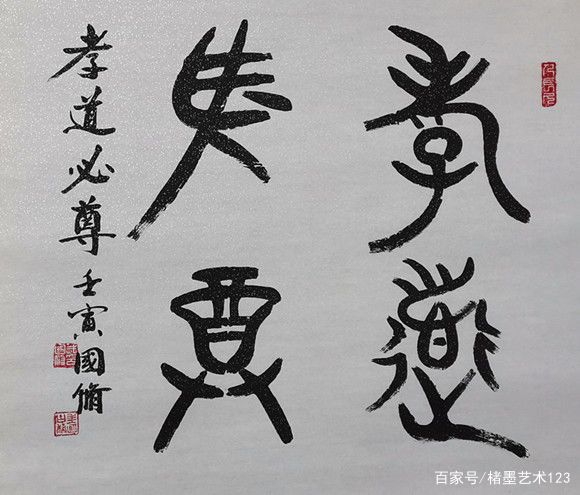 孝道
必尊
孝道必尊 壬寅 國脩
百家号/楮墨艺术123